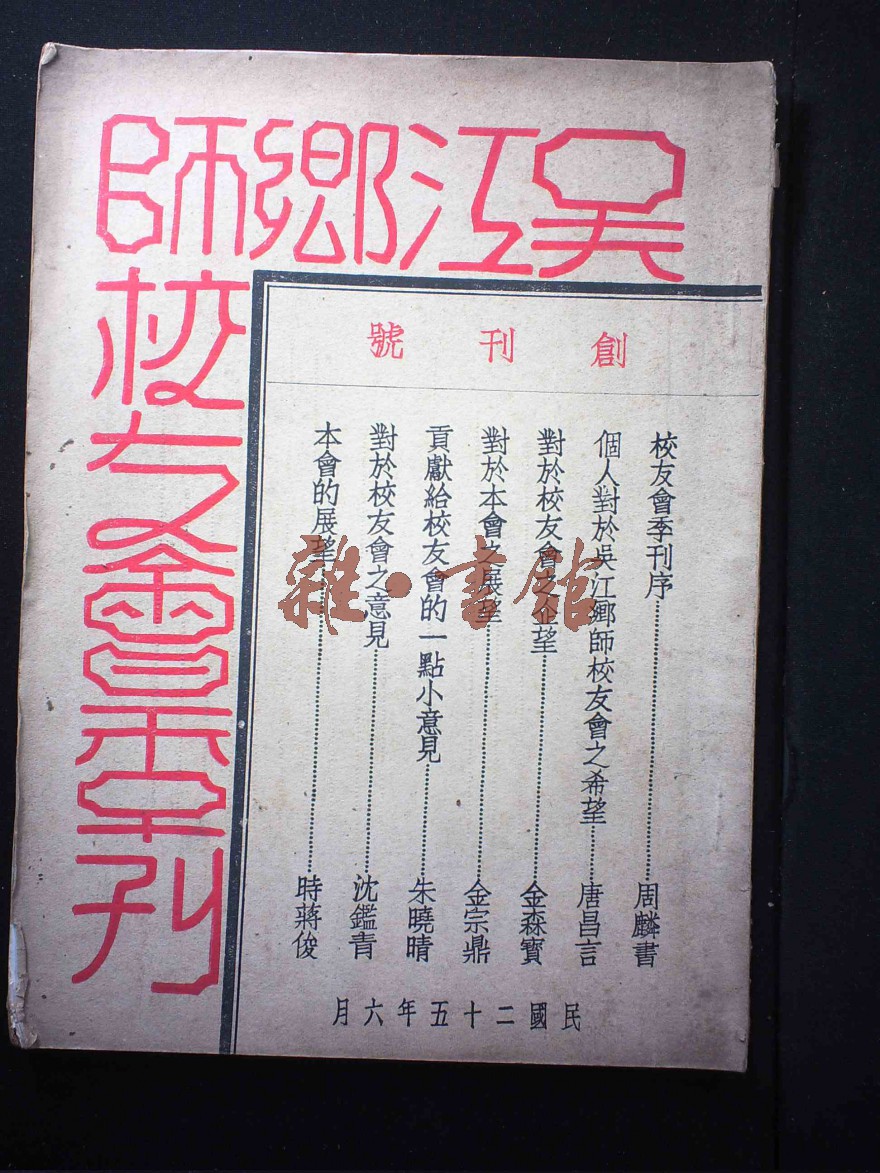 吳江鄉師
校友會季刊
創刊號
校友會季刊序……周麟書
個人對於吳江鄉師校友會之希望……唐昌言
對於校友會之企望……金森寶
對於本會之展望……金宗鼎
貢獻給校友會的一點小意見……朱曉晴
對於校友會之意見……沈鑑青
本會的展望……時蔣俊
民國二十五年六月
雜·書館